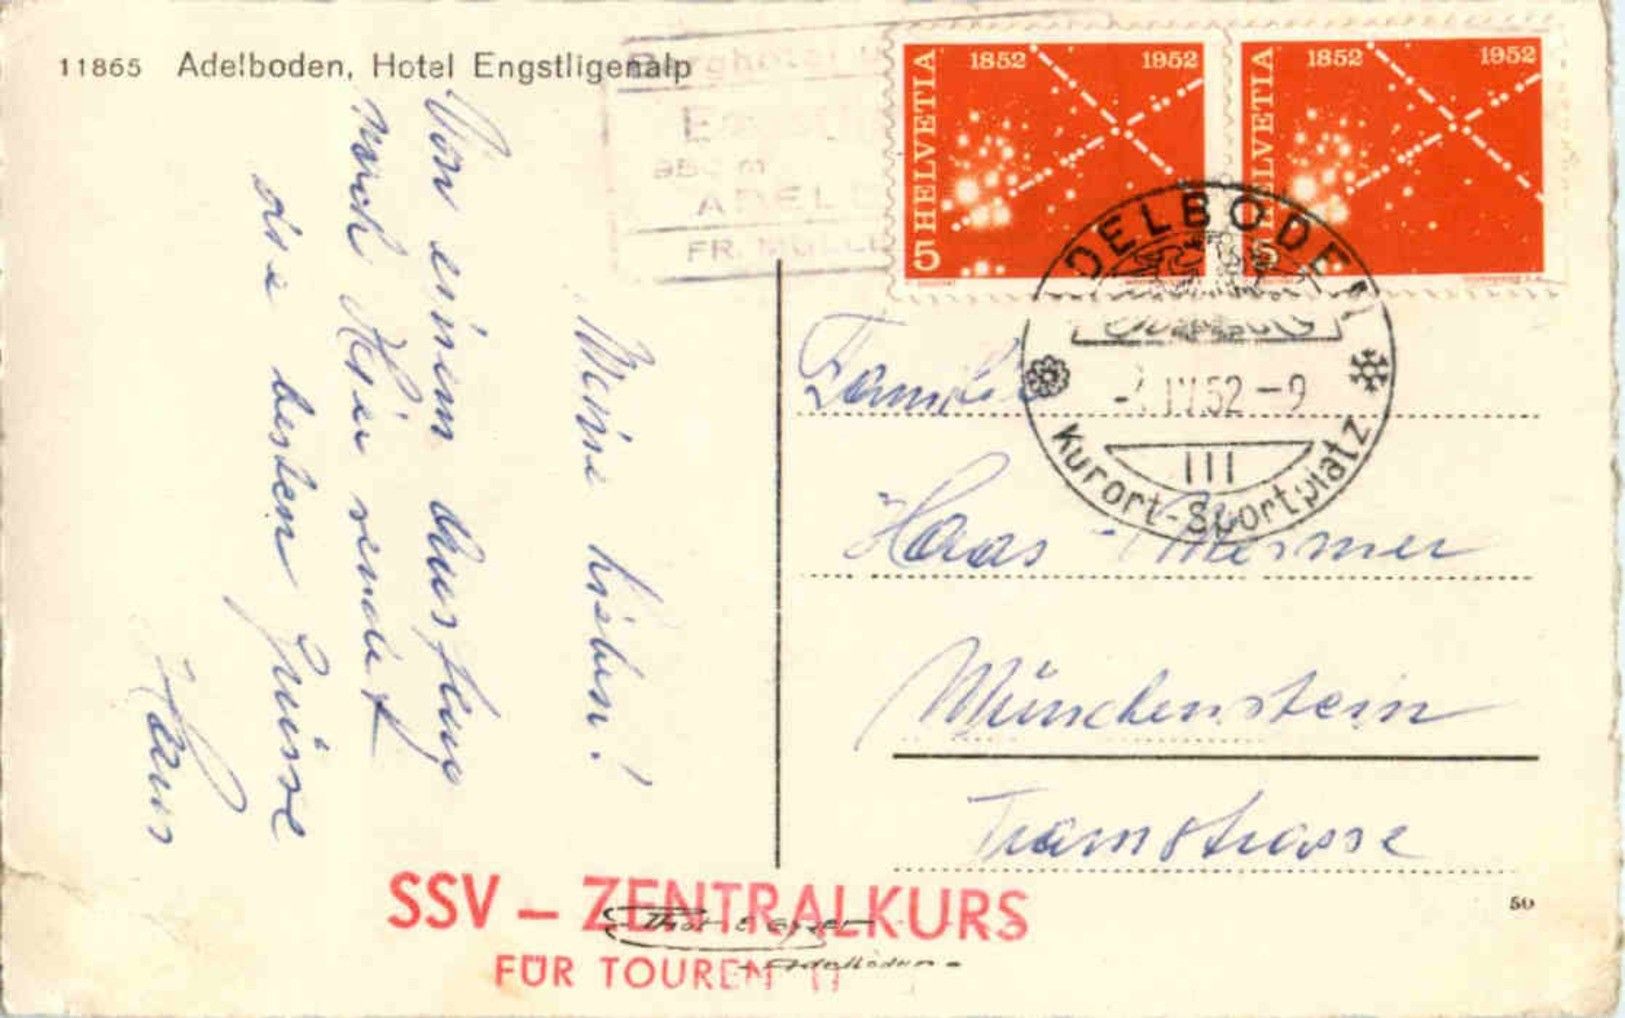 11865 Adelboden, Hotel Engstligenalp
Berghotel
ADELB
FR. MÜLLE
HELVETIA 1852 1952
5
HELVETIA 1852 1952
5
ADELBODEN
IV 52 - 9
III
Kurort-Sportplatz
Meine Lieben!
Von einem Ausflug
nach hier sendet
die besten Grüsse
Hans
Familie
Haas
Münchenstein
Tramstrasse
50
SSV – ZENTRALKURS
FÜR TOUREN
Adelboden